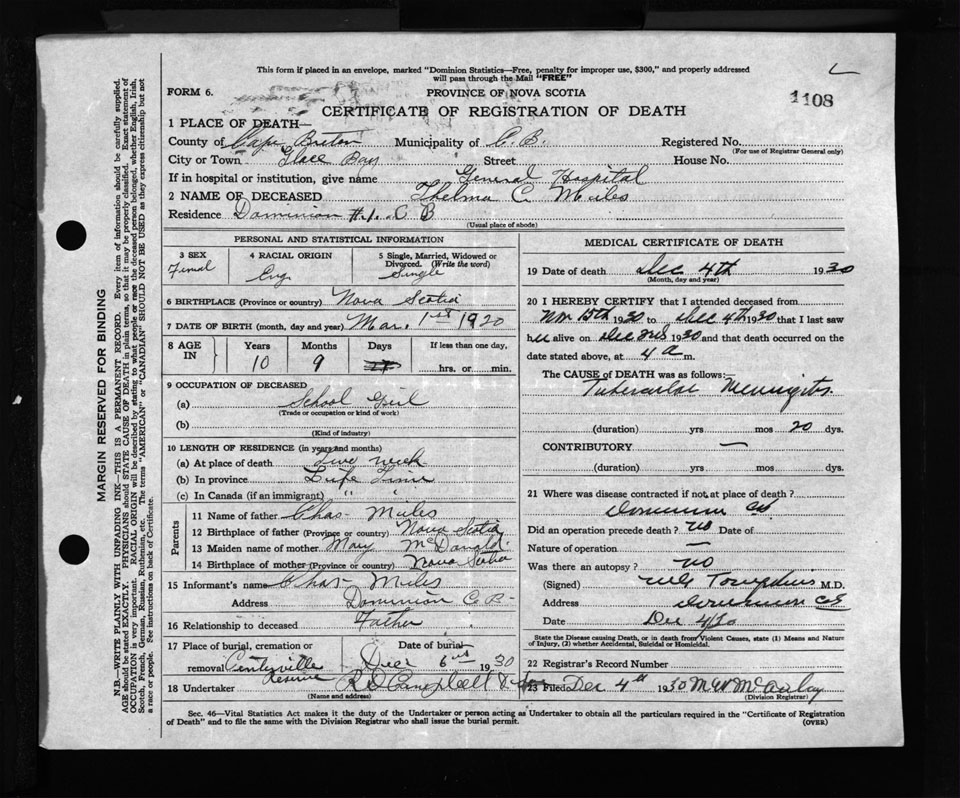 This form if placed in an envelope, marked "Dominion Statistics—Free, penalty for improper use, $300," and properly addressed
will pass through the Mail "FREE"
FORM 6.
PROVINCE OF NOVA SCOTIA
1108
CERTIFICATE OF REGISTRATION OF DEATH
1 PLACE OF DEATH—
County of Cape Breton Municipality of C. B. Registered No.
(For use of Registrar General only)
City or Town Glace Bay Street House No.
If in hospital or institution, give name General Hospital
2 NAME OF DECEASED Thelma C. Miles
Residence Dominion #1. C B
(Usual place of abode)
PERSONAL AND STATISTICAL INFORMATION
3 SEX 4 RACIAL ORIGIN 5 Single, Married, Widowed or
Divorced. (Write the word)
Femal Eng. Single
6 BIRTHPLACE (Province or country) Nova Scotia
7 DATE OF BIRTH (month, day and year) Mar. 1st 1920
8 AGE IN Years Months Days If less than one day,
10 9 hrs. or min.
9 OCCUPATION OF DECEASED
(a) School Girl
(Trade or occupation or kind of work)
(b)
(Kind of industry)
10 LENGTH OF RESIDENCE (in years and months)
(a) At place of death week
(b) In province Life Time
(c) In Canada (if an immigrant) " "
Parents
11 Name of father Chas Miles
12 Birthplace of father (Province or country) Nova Scotia
13 Maiden name of mother Mary McDonald
14 Birthplace of mother (Province or country) Nova Scotia
15 Informant's name Chas Miles
Address Dominion C. B-
16 Relationship to deceased Father
17 Place of burial, cremation or Date of burial
removal Centerville Dec 6 1930
Reserve
18 Undertaker R D Campbell
(Name and address)
MEDICAL CERTIFICATE OF DEATH
19 Date of death Dec 4th 1930
(Month, day and year)
20 I HEREBY CERTIFY that I attended deceased from
Nov 15th 1930 to Dec 4th 1930 that I last saw
her alive on Dec 3rd 1930 and that death occurred on the
date stated above, at 4 a m.
The CAUSE of DEATH was as follows:—
Tubercular Meningitis
(duration) yrs mos 20 dys.
CONTRIBUTORY —
(duration) yrs mos dys.
21 Where was disease contracted if not at place of death?
Dominion CB
Did an operation precede death? no Date of
Nature of operation —
Was there an autopsy? no
(Signed) M.D.
Address Dominion CB
Date Dec 4/30
State the Disease causing Death, or in death from Violent Causes, state (1) Means and Nature
of Injury, (2) whether Accidental, Suicidal or Homicidal.
22 Registrar's Record Number
23 Filed Dec 4th 1930 McAulay
(Division Registrar)
Sec. 46—Vital Statistics Act makes it the duty of the Undertaker or person acting as Undertaker to obtain all the particulars required in the "Certificate of Registration
of Death" and to file the same with the Division Registrar who shall issue the burial permit. (OVER)
MARGIN RESERVED FOR BINDING
N.B.—WRITE PLAINLY WITH UNFADING INK—THIS IS A PERMANENT RECORD. Every item of information should be carefully supplied.
AGE should be stated EXACTLY. PHYSICIANS should STATE CAUSE OF DEATH in plain terms, so that it may be properly classified. Exact statement of
OCCUPATION is very important. RACIAL ORIGIN will be described by stating to what people or race the deceased person belonged, whether English, Irish,
Scotch, French, German, Russian, Ruthenian, etc. The terms "AMERICAN" or "CANADIAN" SHOULD NOT BE USED as they express citizenship but not
a race or people. See instructions on back of Certificate.